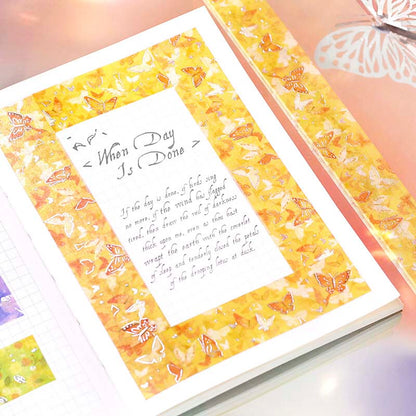 < When Day
Is Done >
If the day is done, if birds sing
no more, if the wind has flagged
tired, then draw the veil of darkness
thick upon me, even as thou hast
wrapt the earth with the coverlet
of sleep and tenderly closed the petals
of the drooping lotus at dusk.